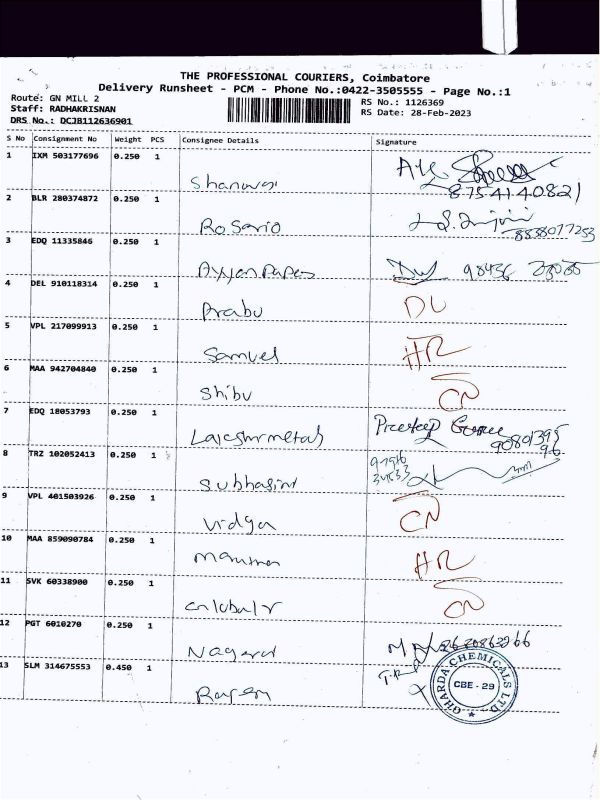 THE PROFESSIONAL COURIERS, Coimbatore
Delivery Runsheet - PCM - Phone No.:0422-3505555 - Page No.:1
Route: GN MILL 2
Staff: RADHAKRISNAN
DRS No.: DCJB112636901
RS No.: 1126369
RS Date: 28-Feb-2023
S No Consignment No Weight PCS Consignee Details Signature
1 IXM 503177696 0.250 1
8754140821
2 BLR 280374872 0.250 1 Rosario
8838077253
3 EDQ 11335846 0.250 1 Ayyan Papes 98436
4 DEL 910118314 0.250 1 Prabu DL
5 VPL 217099913 0.250 1 Samuel HR
6 MAA 942704840 0.250 1 Shibu CN
7 EDQ 18053793 0.250 1 Lakshmi metals
8 TRZ 102052413 0.250 1 Subhasini
9 VPL 401503926 0.250 1 Vidya CN
10 MAA 859090784 0.250 1 HR
11 SVK 60338900 0.250 1 CN
12 PGT 6010270 0.250 1 Nagaraj
13 SLM 314675553 0.450 1
GHARDA CHEMICALS LTD
CBE - 29